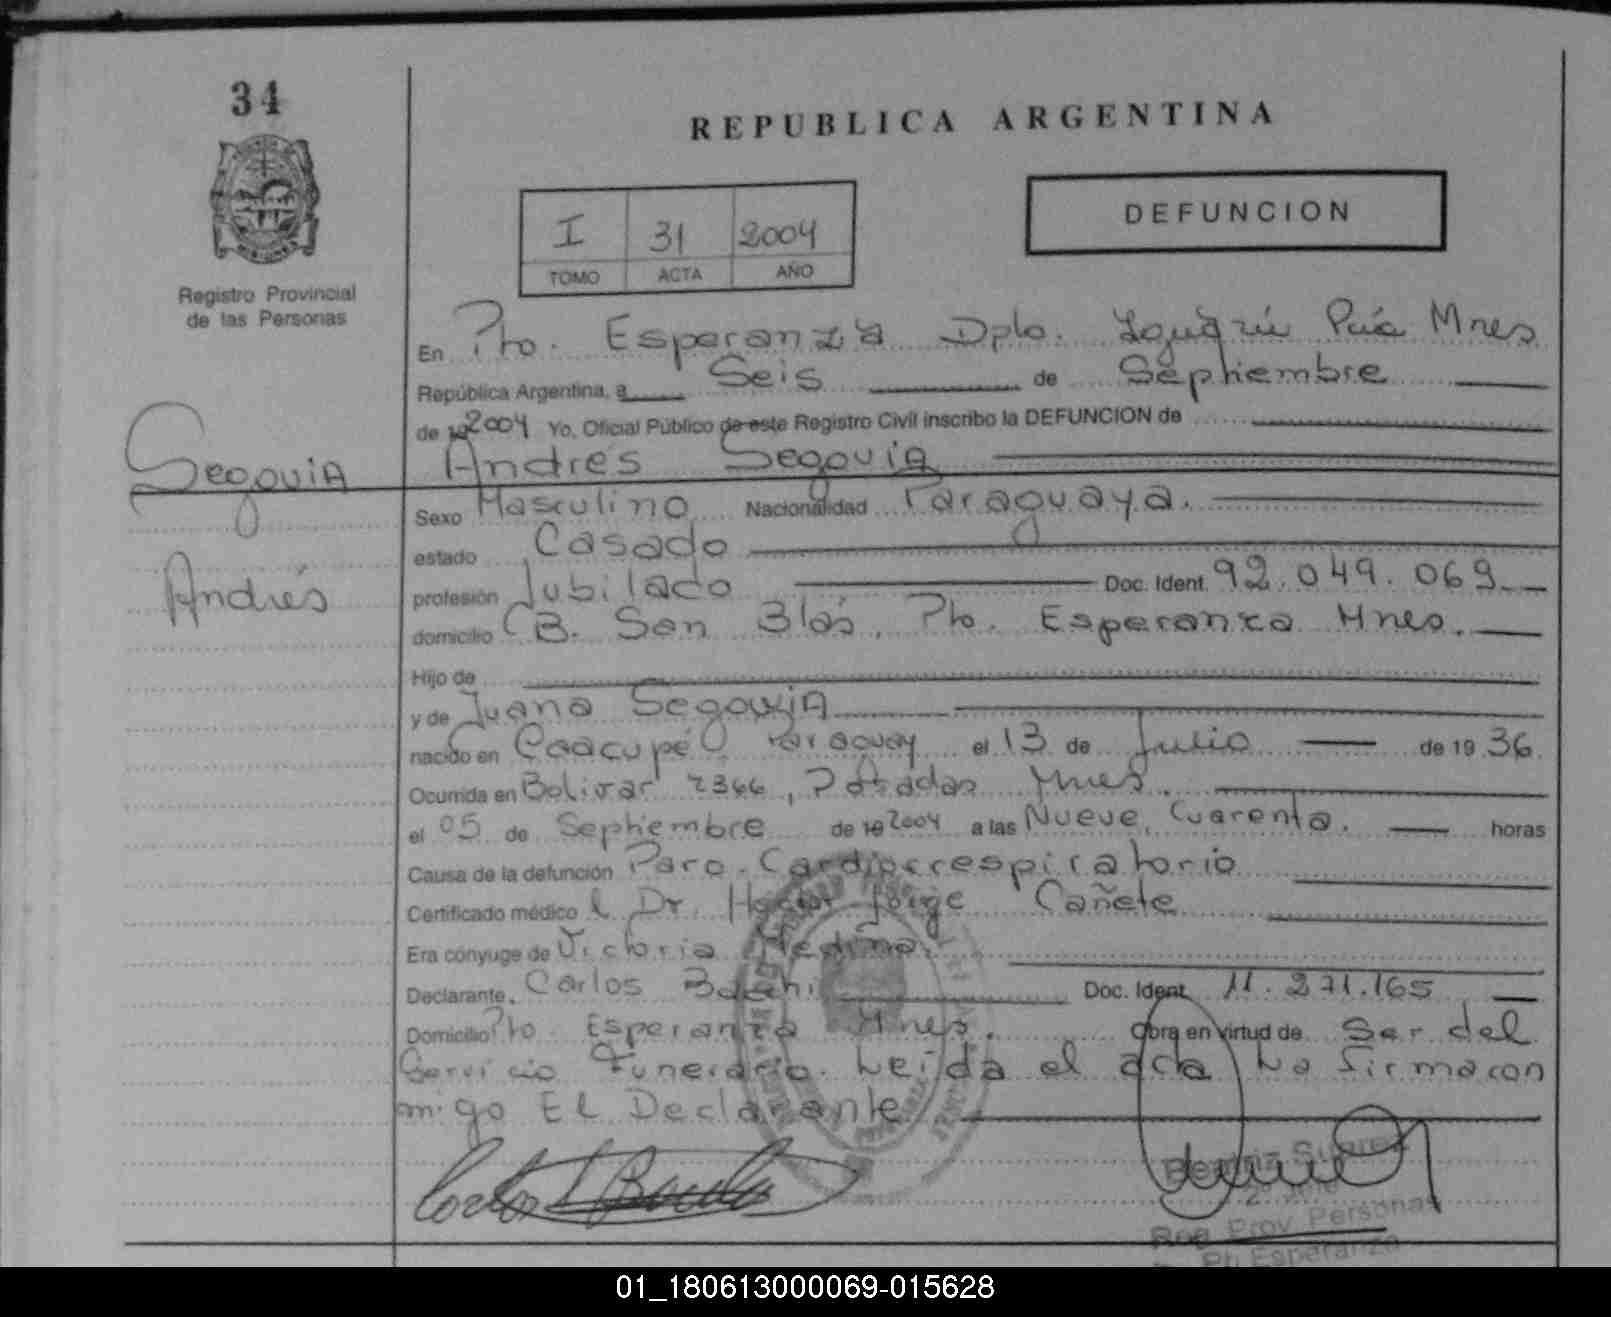 34
REPUBLICA ARGENTINA
DEFUNCION
I 31 2004
TOMO ACTA AÑO
Registro Provincial
de las Personas
En Pto. Esperanza Dpto. Pcia Mnes
República Argentina, a Seis de Septiembre
de 19 2004 Yo, Oficial Público de este Registro Civil inscribo la DEFUNCION de
Segovia
Andrés
Andrés Segovia
Sexo Masculino Nacionalidad Paraguaya.
estado Casado
profesión Jubilado Doc. Ident. 92.049.069
domicilio B. San Blás, Pto. Esperanza Mnes.
Hijo de
y de Juana Segovia
nacido en Caacupé Paraguay el 13 de Julio de 19 36
Ocurrida en Bolivar 2366, Posadas Mnes.
el 05 de Septiembre de 19 2004 a las Nueve, Cuarenta. horas
Causa de la defunción Paro Cardiorrespiratorio
Certificado médico Dr. Hector Jorge Cañete
Era cónyuge de Victoria Medina.
Declarante, Carlos Doc. Ident. 11.271.165
Domicilio Pto. Esperanza Mnes. Obra en virtud de Ser del
Servicio Funerario. Leída el acta La firma con
migo El Declarante
Suarez
Reg. Prov. Personas
Pto. Esperanza
01_180613000069-015628